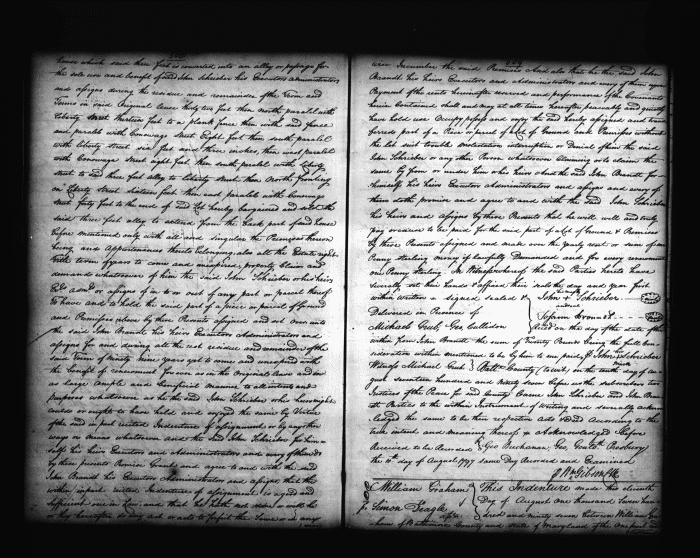 house which said three feet is converted into an alley or passage for
the sole use and benefit of said John Schrieber his Executors administrators
and assigns during the residue and remainder of the Term and
Terms in said Original lease thirty two feet then north parallel with
Liberty Street thirteen feet to a plank fence then with said fence
and parallel with Conowago Street Eight feet then south parallel
with Liberty street six feet and three inches, then and parallel
with Conowago Street eight feet then south parallel with Liberty
street to said three feet alley to Liberty street then North fronting
on Liberty Street sixteen feet then and parallel with Conowago
Street forty feet to the end of said Lot hereby bargained and sold the
said three feet alley to extend from the back part of said house
before mentioned only with all and singular the Premises thereon
being and Appurtenances thereto belonging also all the Estate right
title term of years to come and unexpired, property Claim and
demands whatsoever of him the said John Schrieber or his heirs
Exrs Admrs or assigns of in to or out of any part or parcel thereof
To have and to hold the said part of a piece or parcel of Ground
and Premises where by these Presents assigned and set over unto
the said John Brandt his Heirs Executors Administrators and
assigns for and during all the rest residue and remainder of the
said Term of Ninety Nine years yet to come and unexpired with
the benefit of renewment forever as in the Original lease and in
as large ample and beneficial manner to all intents and
purposes whatsoever as he the said John Schrieber his heirs might
could or ought to have held and enjoyed the same by Virtue
of the said in part recited Indenture of assignment or by any other
ways or means whatsoever and the said John Schrieber for him
self his heirs Executors and Administrators and every of them doth
by these presents Covenant Grant and agree to and with the said
John Brandt his Executors Administrators and assigns that the
within in part recited Indenture of assignment is a good and
sufficient one in Law, and that he hath not done, nor will he
or they hereafter do any act or acts to forfeit the Same or in any
wise Incumber the said Premises And also that he the said John
Brandt his heirs Executors and Administrators and assigns upon
Payment of the rents hereinafter reserved and performance of the Covenants
herein Contained shall and may at all times hereafter peaceably and quietly
have hold use Occupy possess and enjoy the said hereby assigned and trans
ferred part of a Piece or parcel of Lot of Ground with Premises without
the let suit trouble molestation interruption or Denial of him the said
John Schrieber or any other Person whatsoever Claiming or to claim the
same by from or under him or his heirs And the said John Brandt for
himself his heirs Executors Administrators and assigns and every of
them doth promise and agree to and with the said John Schrieber
his heirs and assigns by these Presents that he will well and truly
pay or cause to be paid for the said part of a Lot of Ground & Premises
by these Presents assigned and make over the yearly rent or sum of one
Penny sterling money if lawfully Demanded and for every renewment
one Penny sterling. In Witness whereof the said Parties hereto have
severally set their hands & affixed their seals the day and year first
within written - signed sealed &
Delivered in Presence of
John Schrieber
Michael Cub, Geo. Cullidon
Recd on the day of the date of the
within from John Brandt the sum of Twenty Pounds being the full con
sideration within mentioned to be by him to me paid John Schrieber
Witness Michael Cub
Balto County (to wit) on the tenth day of Au
gust seventeen hundred and Ninety seven before us the subscribers two
Justices of the Peace for said County Came John Schrieber and John Bran
dt Parties to the within Instrument of writing and severally acknow
ledged the same to be their respective Acts and Deed According to the
true intent and meaning thereof & Acknowledged before
Geo Buchanan, Geo. Goulds. Presbury
Received to be Recorded
the 10th day of August 1797 same Day Recorded and Examined
Wm Gibson Clk
William Graham
to
Simon Deagle
This Indenture made this eleventh
Day of August One thousand Seven hun
dred and ninety seven Between William Gra
ham of Baltimore County and State of Maryland of the One part and